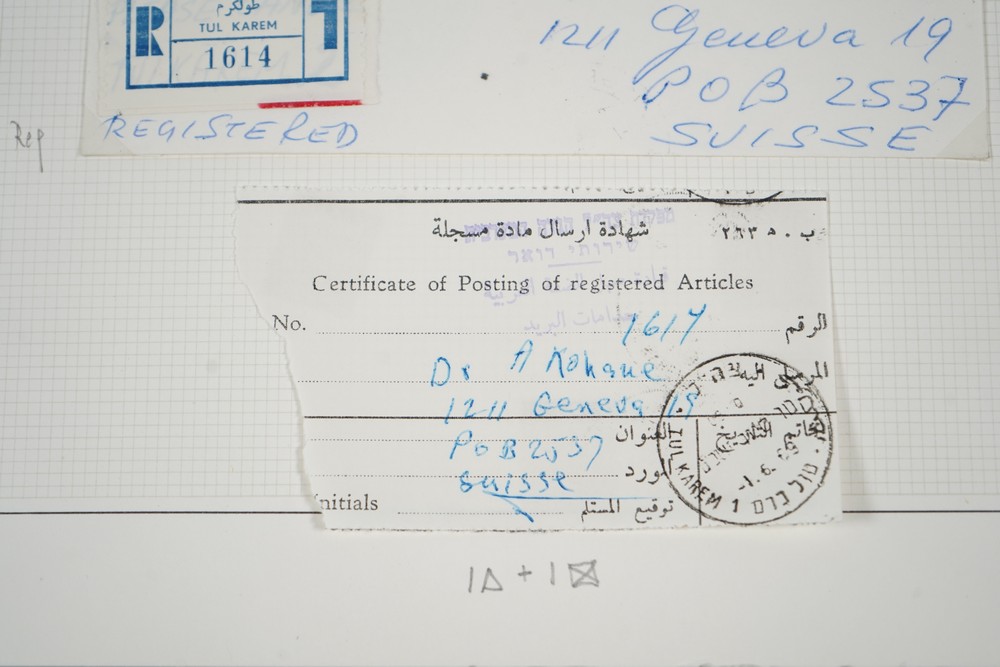 طولكرم
TUL KAREM
R
1614
REGISTERED
1211 Geneva 19
POB 2537
SUISSE
Reg
شهادة ارسال مادة مسجلة
ب . ٥ ٢٦٣
Certificate of Posting of registered Articles
No. 1614 الرقم
Dr A Kohane
1211 Geneva 19
POB 2537 العنوان
Suisse
Initials توقيع المستلم
خاتم التاريخ
שירותי דואר
خدامات البريد
TUL KAREM 1 טול כרם
-1.6.
1 + 1